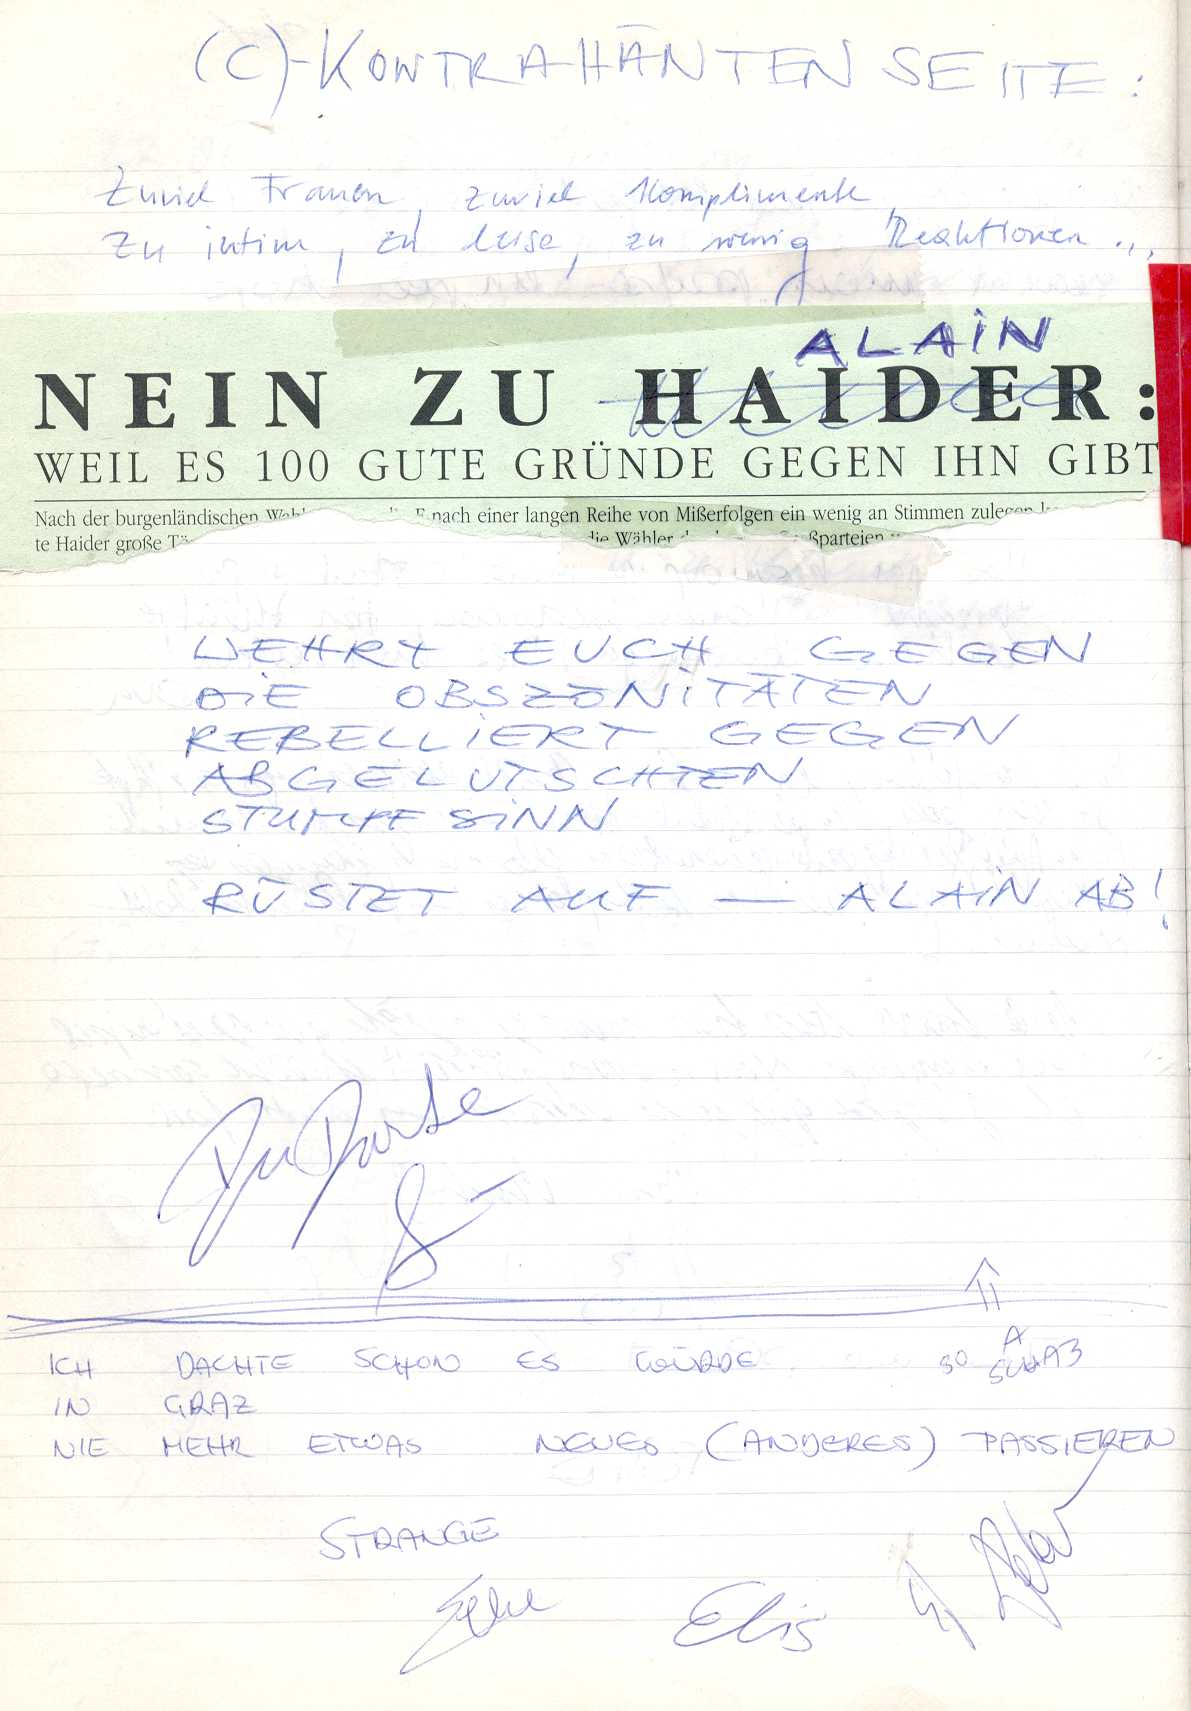 (C)-KONTRAHÄNTEN SEITE:
Zuviel Frauen, zuviel Komplimente,
Zu intim, zu leise, zu wenig Reaktionen...
ALAIN
NEIN ZU HAIDER:
WEIL ES 100 GUTE GRÜNDE GEGEN IHN GIBT
Nach der burgenländischen nach einer langen Reihe von Mißerfolgen ein wenig an Stimmen zulegen
te Haider große die Wähler ßparteien
WEHRT EUCH GEGEN
DIE OBSZÖNITÄTEN
REBELLIERT GEGEN
ABGELUTSCHTEN
STUMPFSINN
RÜSTET AUF — ALAIN AB!
ICH DACHTE SCHON ES WÜRDE SO
IN GRAZ
NIE MEHR ETWAS NEUES (ANDERES) PASSIEREN
STRANGE
Elis